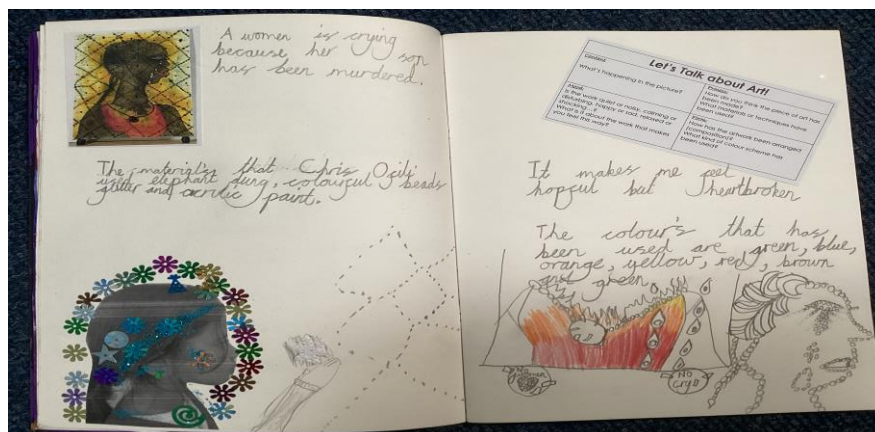 A women is crying
because her son
has been murdered.
The material's that Chris Ofili
used elephant dung, colourful beads
glitter and acrylic paint.
Let's Talk about Art!
Content:
What's happening in the picture?
Process:
How do you think the piece of art has
been made?
What materials or techniques have
been used?
Mood:
Is the work quiet or noisy, calming or
disturbing, happy or sad, relaxed or
shocking...?
What's it about the work that makes
you feel this way?
Form:
How has the artwork been arranged
(composition)?
What kind of colour scheme has
been used?
It makes me feel
hopful but heartbroken
The colour's that has
been used are green, blue,
orange, yellow, red, brown
and green.
No
NO
cry!!